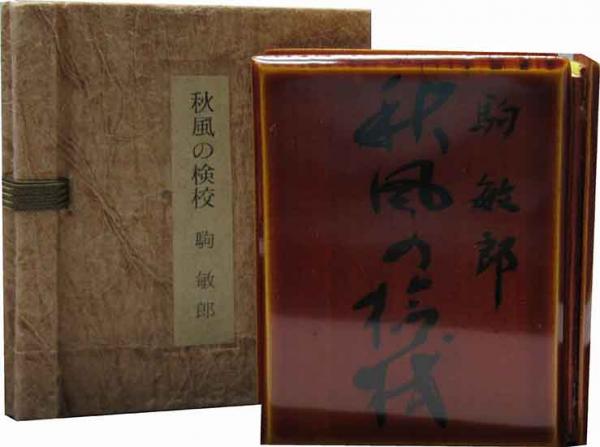 秋風の検校 駒敏郎
駒敏郎
秋風の検校